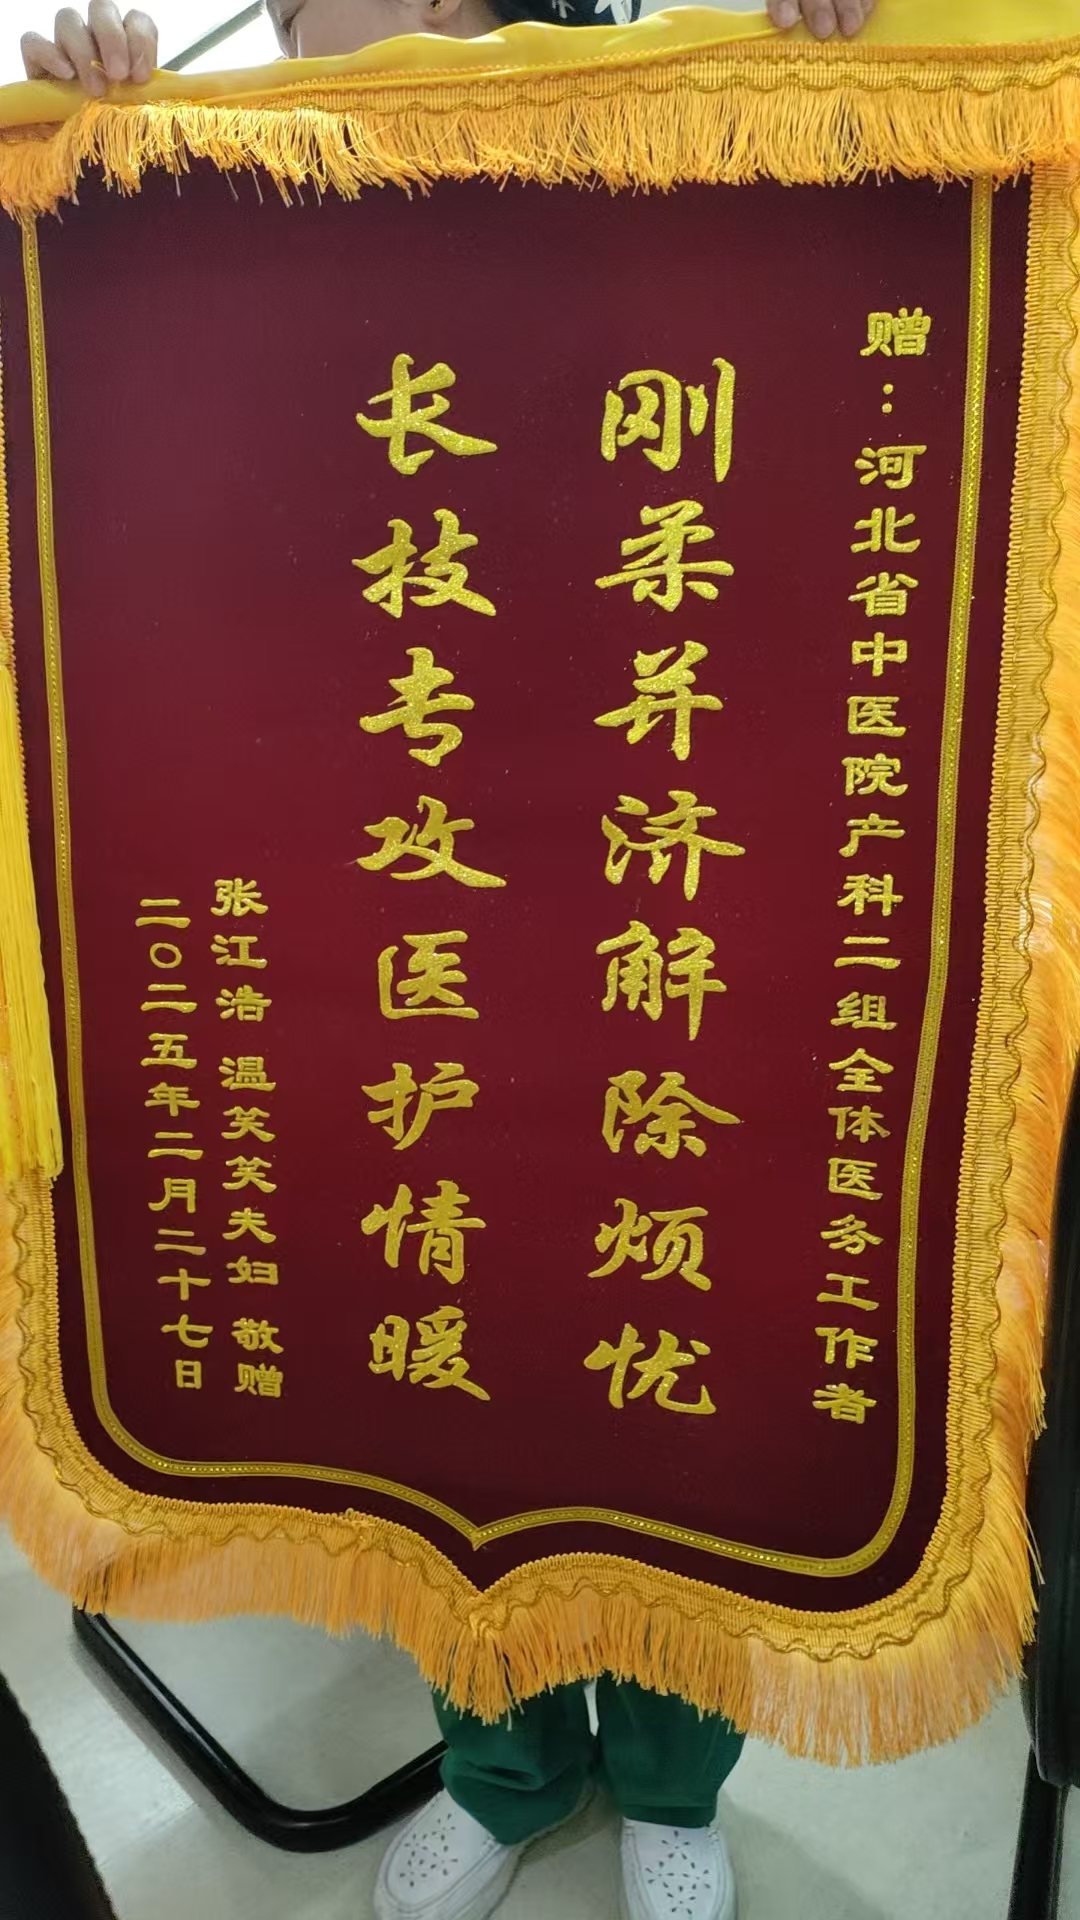 赠：河北省中医院产科二组全体医务工作者
刚柔并济解除烦忧
长技专攻医护情暖
张江浩 温笑笑夫妇 敬赠
二〇二五年二月二十七日